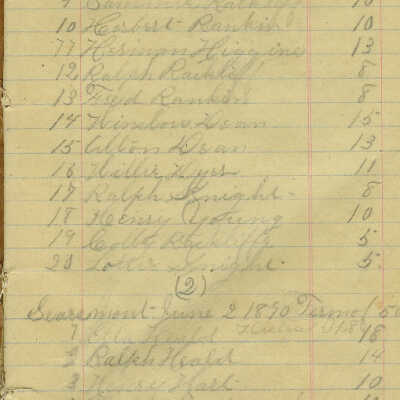 10 Herbert Rankin 10
11 Herman Higgins 13
12 Ralph 8
13 Fred Rankin 8
14 Winslow Dean 15
15 Alton Dean 13
16 Willie 11
17 Ralph Knight 8
18 Henry Young 10
19 5
20 Lottie Knight 5
(2)
Searsmont June 2 1890 Term of
1 Ella Heald 18
2 Ralph Heald 14
3 Henry Hart 10